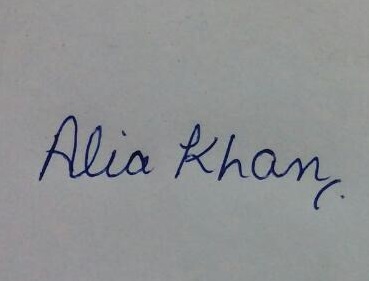 Alia Khan